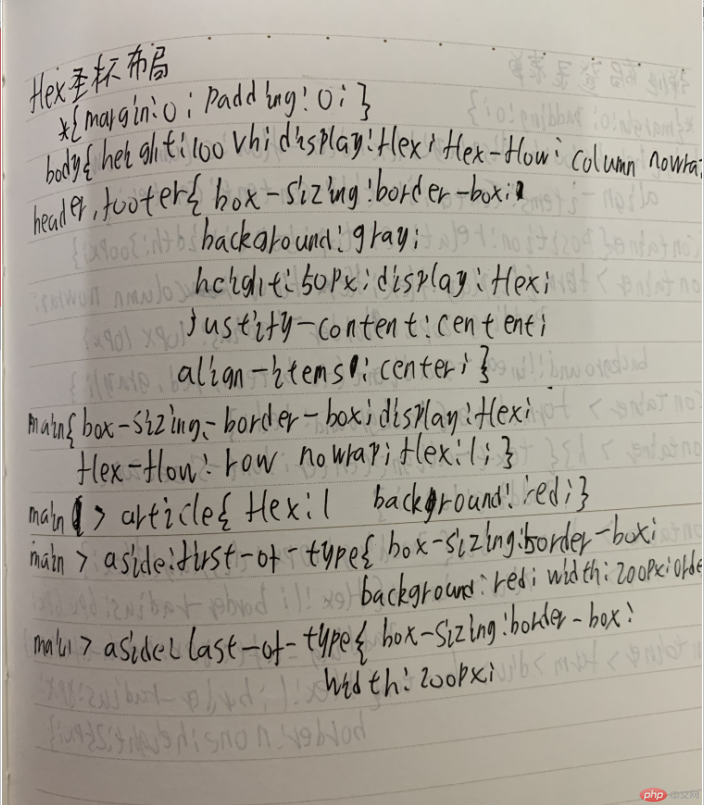 flex圣杯布局
*{margin:0; padding:0;}
body{height:100vh;display:flex;flex-flow: column nowra
header,footer{ box-sizing:border-box;
background:gray;
height:50px;display:flex;
justify-content:center;
align-items:center;}
main{box-sizing:border-box;display:flex;
flex-flow: row nowrap;flex:1;}
main > article{ flex:1 background:red;}
main > aside:first-of-type{ box-sizing:border-box;
background:red; width:200px;orde
main > aside:last-of-type{ box-sizing:border-box;
width:200px;
php 中文网